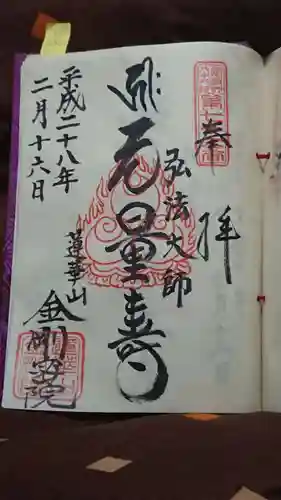 奉拝
弘法大師
无量寿
蓮華山
金剛宝院
平成二十八年
二月十六日